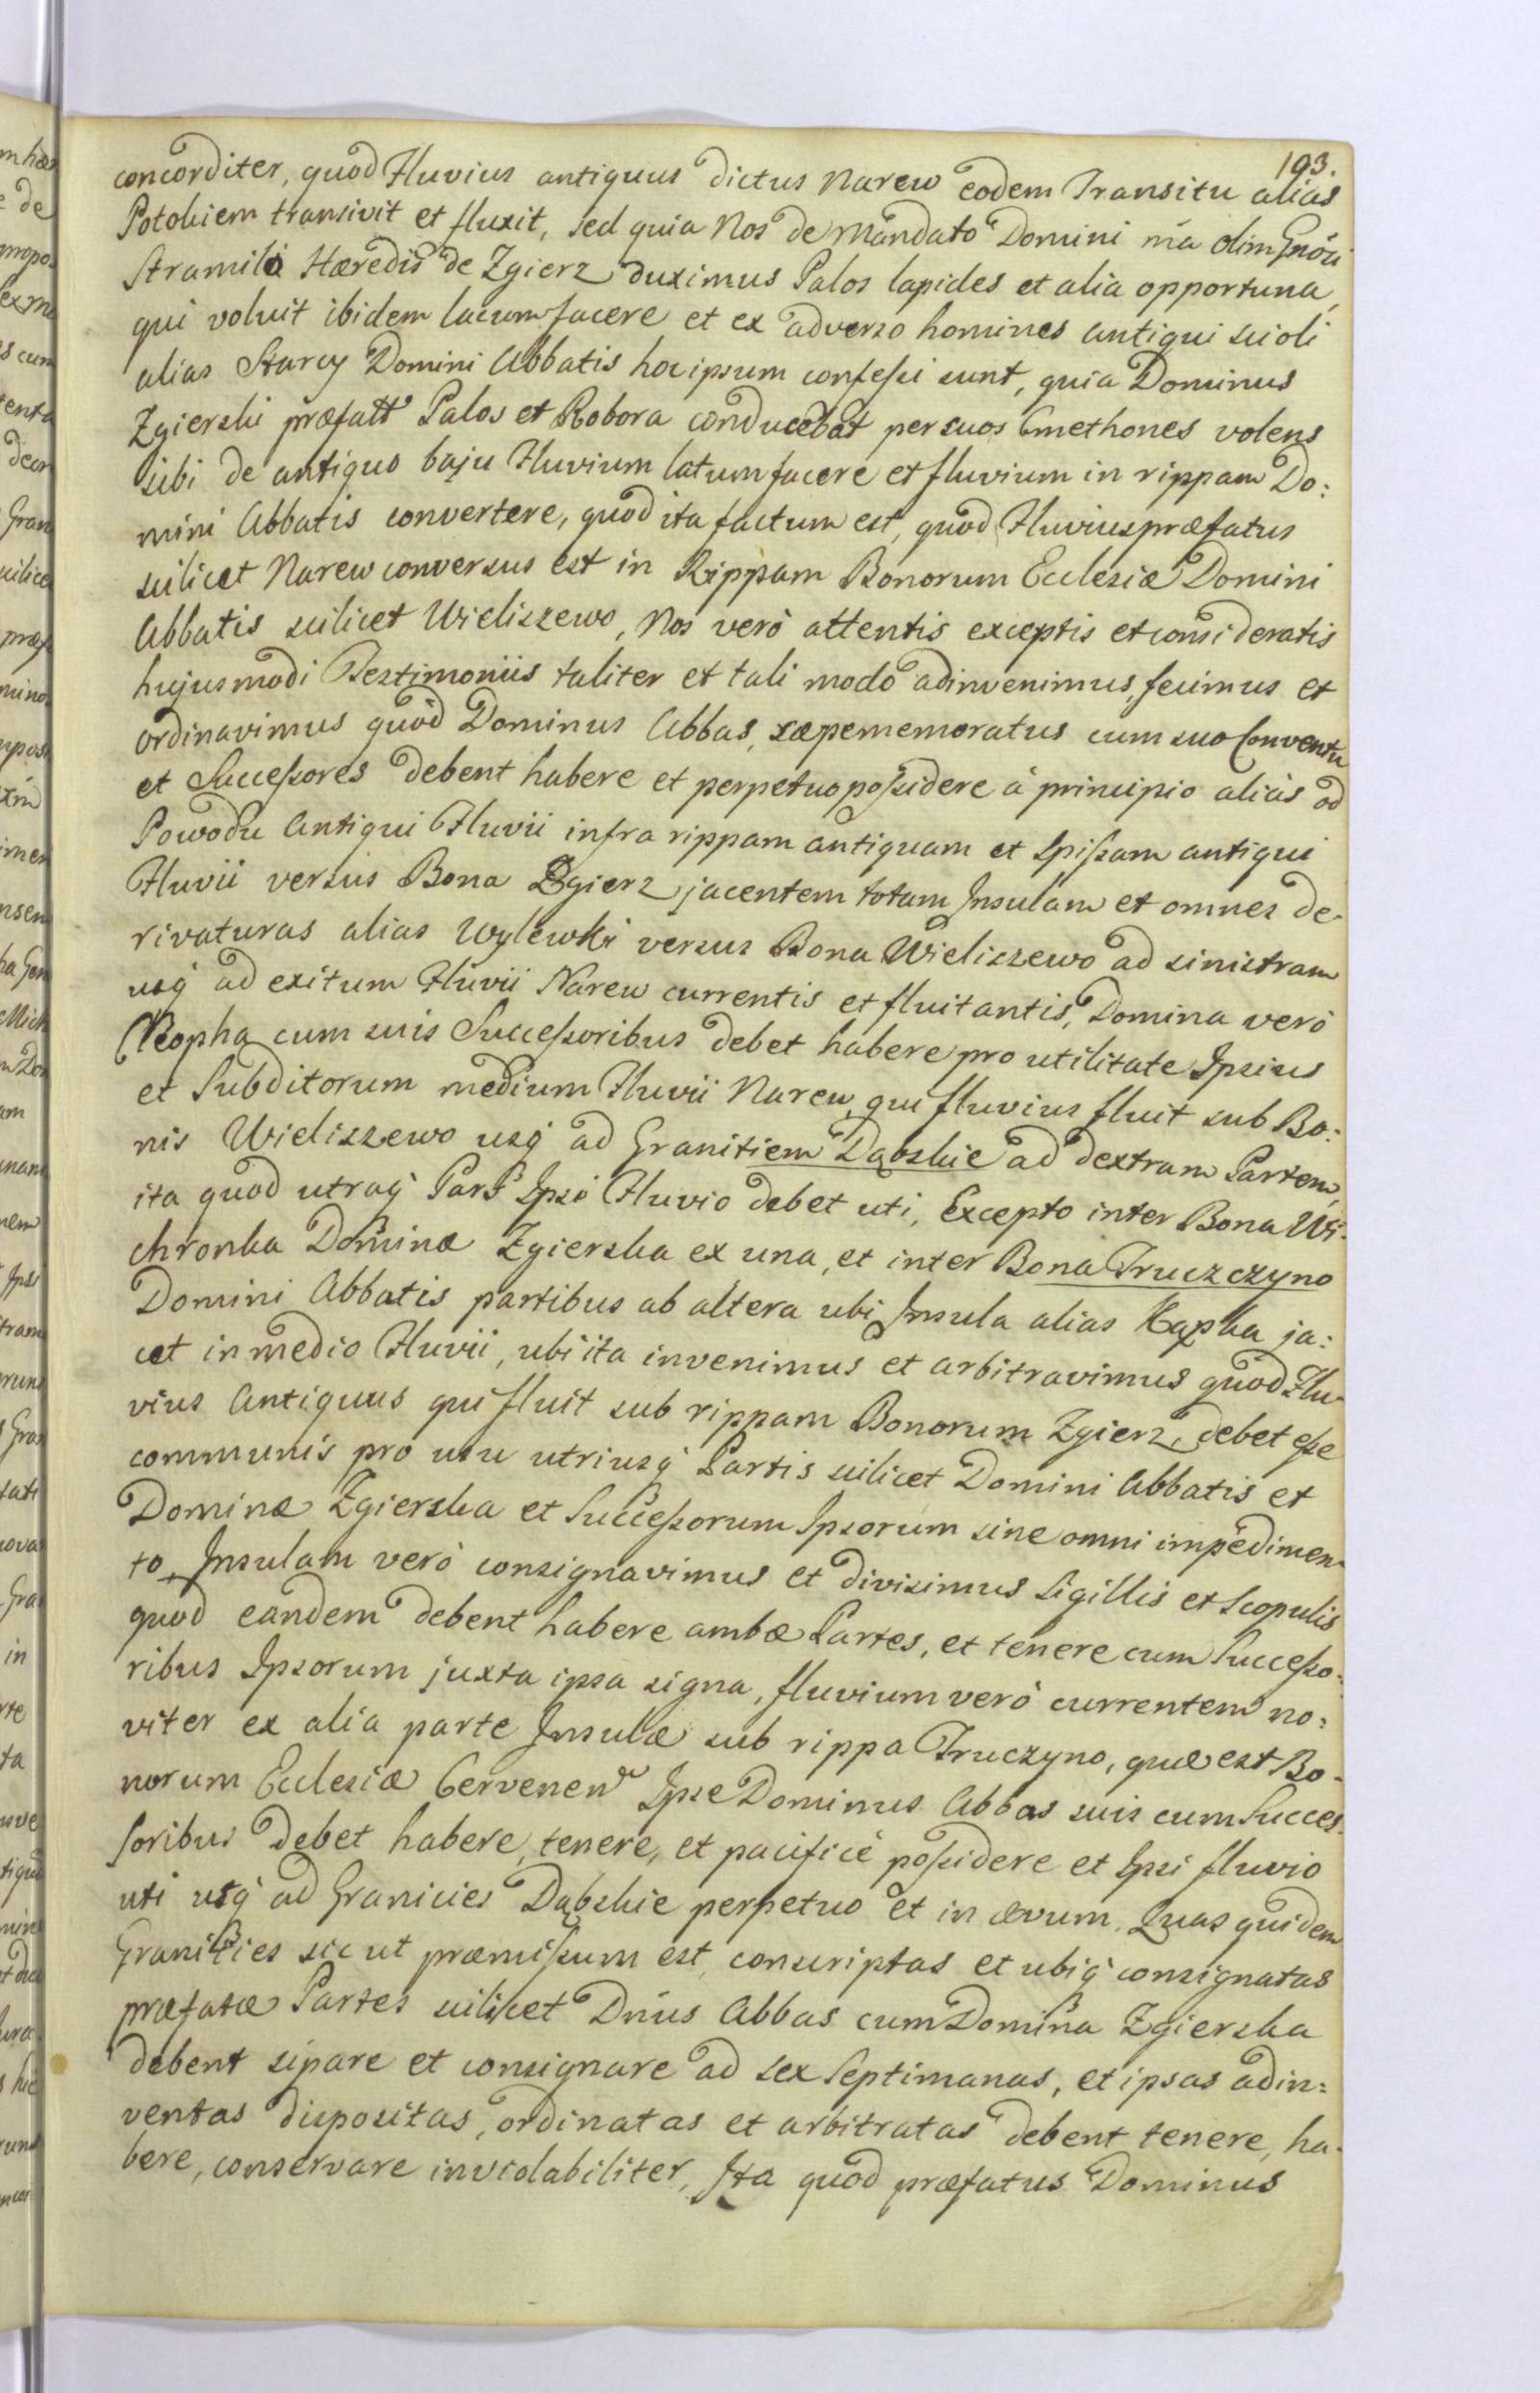 193.
concorditer, quod Fluvius antiquus dictus Narew eodem Transitu alias
Potokiem transivit et fluxit, sed quia Nos de Mandato Domini ńra olim Gnoṡi
Stramili Hæredis de Zgierz duximus Palos lapides et alia opportuna,
qui voluit ibidem lacum facere et ex adverso homines antiqui scioli
alias Starcy Domini Abbatis hoc ipsum confeſsi sunt, quia Dominus
Zgierski præfatt Palos et Robora conducebat per suos Cmethones volens
sibi de antiquo baju Fluvium latum facere et fluvium in rippam Do:
mini Abbatis convertere, quod ita factum est, quod Fluvius præfatus
scilicet Narew conversus est in Rippam Bonorum Ecclesiæ Domini
Abbatis scilicet Wieliszewo, Nos verò attentis exceptis et consideratis
hujusmodi Testimoniis taliter et tali modo adinvenimus, fecimus et
ordinavimus quòd Dominus Abbas, sæpememoratus cum suo Conventu
et Succeſsores debent habere et perpetuo poſsidere à principio aliàs od
Powodu Antiqui Fluvii infra rippam antiquam et Spiſsam antiqui
Fluvii versus Bona Zgierz jacentem totam Insulam et omnes de-
rivaturas alias Wylewki versus Bona Wieliszewo ad sinistram
usq́ ad exitum Fluvii Narew currentis et fluitantis, Domina verò
Cleopha cum suis Succeſsoribus debet habere pro utilitate Ipsius
et Subditorum medium Fluvii Narew, qui fluvius fluit sub Bo:
nis Wieliszewo usq́ ad Granitiem Dąbskie ad dextram Partem,
ita quod utraq́ Pars Ipso Fluvio debet uti, Excepto inter Bona Wi-
chronka Dominæ Zgierska ex una, et inter Bona Truczczyno
Domini Abbatis partibus ab altera ubi Insula alias Kąpka ja:
cet in medio Fluvii, ubi ita invenimus et arbitravimus quod Flu-
vius Antiquus qui fluit sub rippam Bonorum Zgierz, debet eſse
communis pro usu utriusq́ Partis scilicet Domini Abbatis et
Dominæ Zgierska et Succeſsorum Ipsorum sine omni impedimen-
to, Insulam verò consignavimus et divisimus Sigillis et Scopulis
quod eandem debent habere ambæ Partes, et tenere cum Succeſso-
ribus Ipsorum juxta ipsa signa, fluvium verò currentem no:
viter ex alia parte Insulæ sub rippa Truczyno, quæ est Bo-
norum Ecclesiæ Cervenen Ipse Dominus Abbas suis cum Succes-
soribus debet habere, tenere, et pacificè poſsidere et Ipsi fluvio
uti usq́ ad Granicies Dąbskie perpetuo et in ævum. Quas quidem
Granities sic ut præmiſsum est, conscriptas et ubiq́ consignatas
præfatæ Partes scilicet Dńus Abbas cum Domina Zgierska
debent sipare et consignare ad sex Septimanas, et ipsas adin:
ventas dispositas, ordinatas et arbitratas debent tenere, ha-
bere, conservare inviolabiliter, Ita quod præfatus Dominus